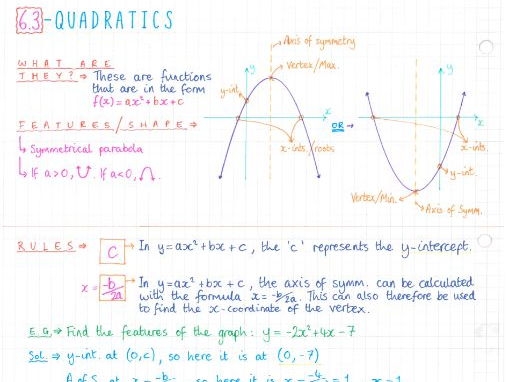 6.3-QUADRATICS
WHAT ARE
THEY? ⇒ These are functions
that are in the form
f(x) = ax² + bx + c
FEATURES/SHAPE ⇒
↳ Symmetrical parabola
↳ If a>0, ∪. If a<0, ∩.
Axis of symmetry
Vertex/Max.
y
y-int
x
x-ints/roots
OR →
y
x
x-ints.
y-int.
Vertex/Min.
Axis of Symm.
RULES ⇒ C → In y=ax²+bx+c, the 'c' represents the y-intercept.
x = -b/2a → In y=ax²+bx+c, the axis of symm. can be calculated
with the formula x=-b/2a. This can also therefore be used
to find the x-coordinate of the vertex.
E.G. ⇒ Find the features of the graph: y = -2x²+4x-7
Sol. ⇒ y-int. at (0,c), so here it is at (0,-7)
A of S. at x = -b, so here it is x = -4 = 1 x = 1